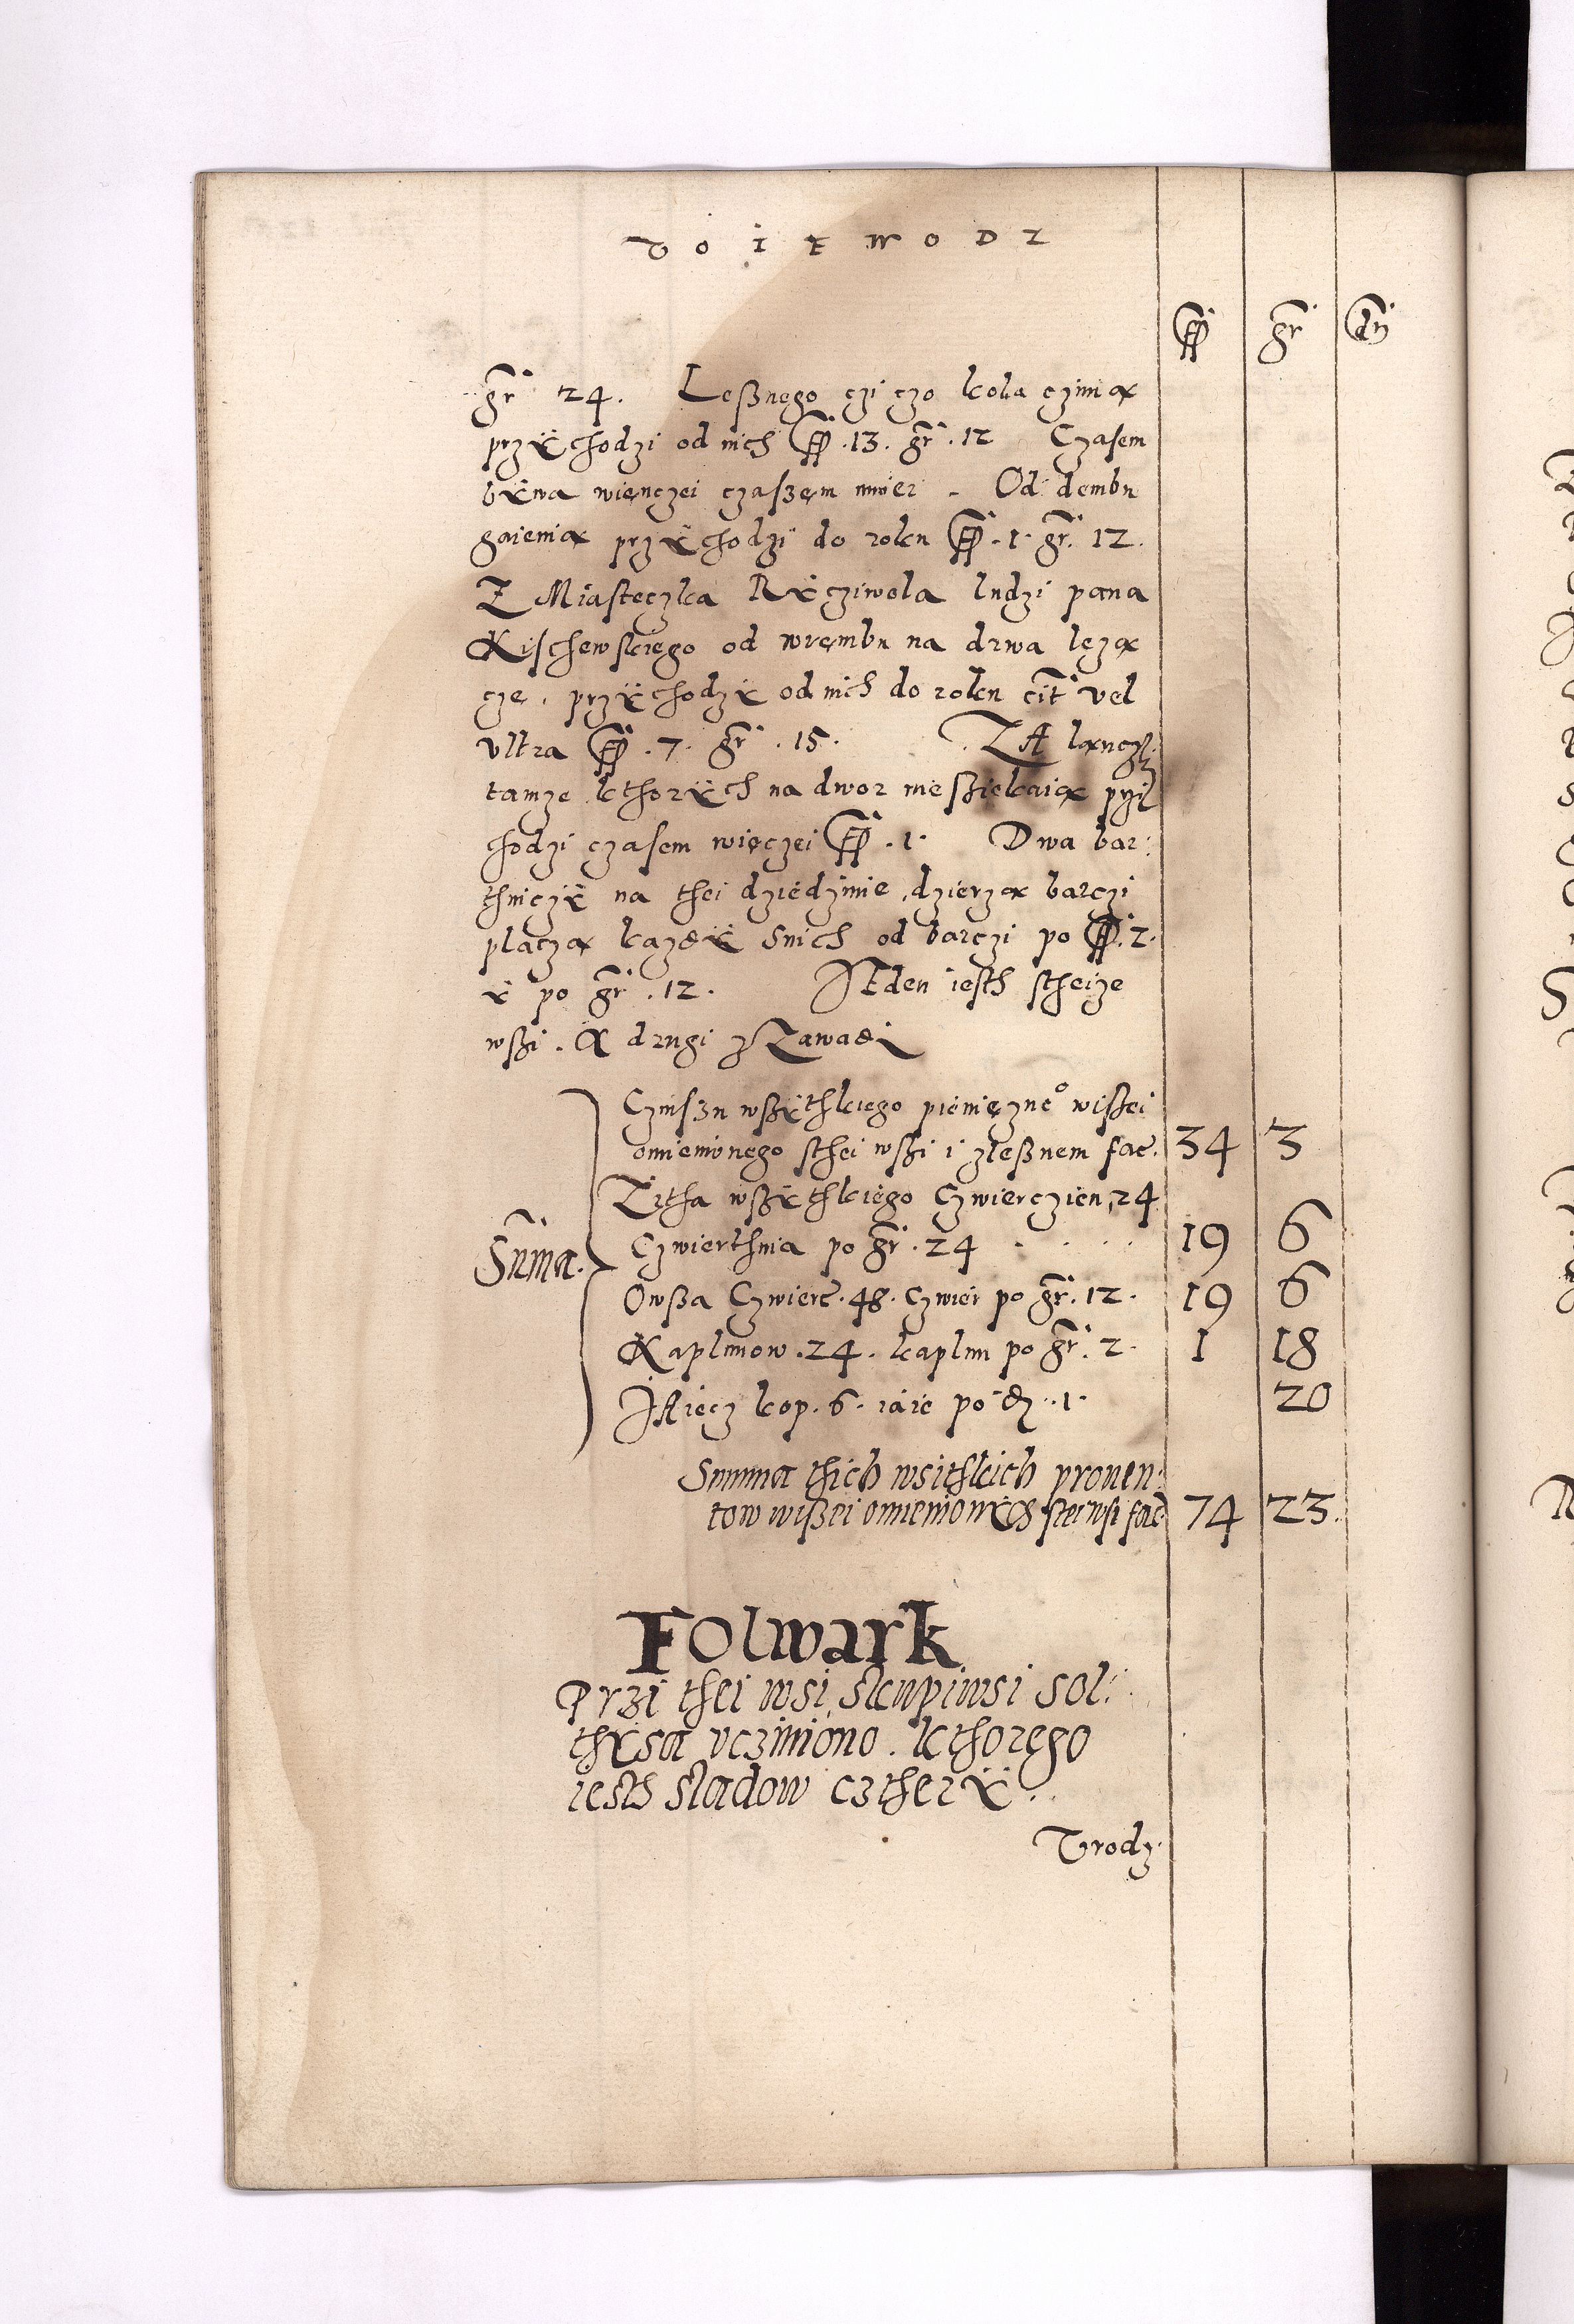 VOIEWODZ
ff gr dn
gr 24. Leßnego czi czo kola czinią
przÿchodzi od nich ff .13. gr .12 Czasem
bÿwa wienczei czaszem mniei. Od dembu
gaienia przÿchodzi do roku ff .1. gr. 12.
Z Miasteczka Rÿcziwola ludzi pana
Kischewskiego od wrembu na drwa lezą
cze. przÿchodzÿ od nich do roku cit vel
vltra ff .7. gr .15. ZA
tamze kthorÿch na dwor nie przi
chodzi czasem więczei ff .1. Dwa bar:
thniczÿ na thei dziedzinie, dzierzą barczi
placzą kazdÿ snich od barczi po ff .2.
ÿ po gr .12. JEden iesth stheize
wßi. A drugi z Zawadi
Czinszu wßÿthkiego pienięzne° wißei
omienionego sthei wßi i zleßnem fac. 34 3
Zitha wßÿthkiego Czwierczien, 24
Czwierthnia po gr .24 19 6
Suma.
Owßa Czwierc .48. Czwier po gr. 12. 19 6
Kaplunow .24. kaplun po gr. 2. 1 18
JAiecz kop .6. iaie po d .1. 20
Summa thich wsithkich prouen:
tow wißei omienionÿch stei wsi fac 74 23.
Folwark
Przi thei wsi, skupiwsi sol:
thÿsa vcziniono. kthorego
iesth sladow cztherÿ..
Vrodz.